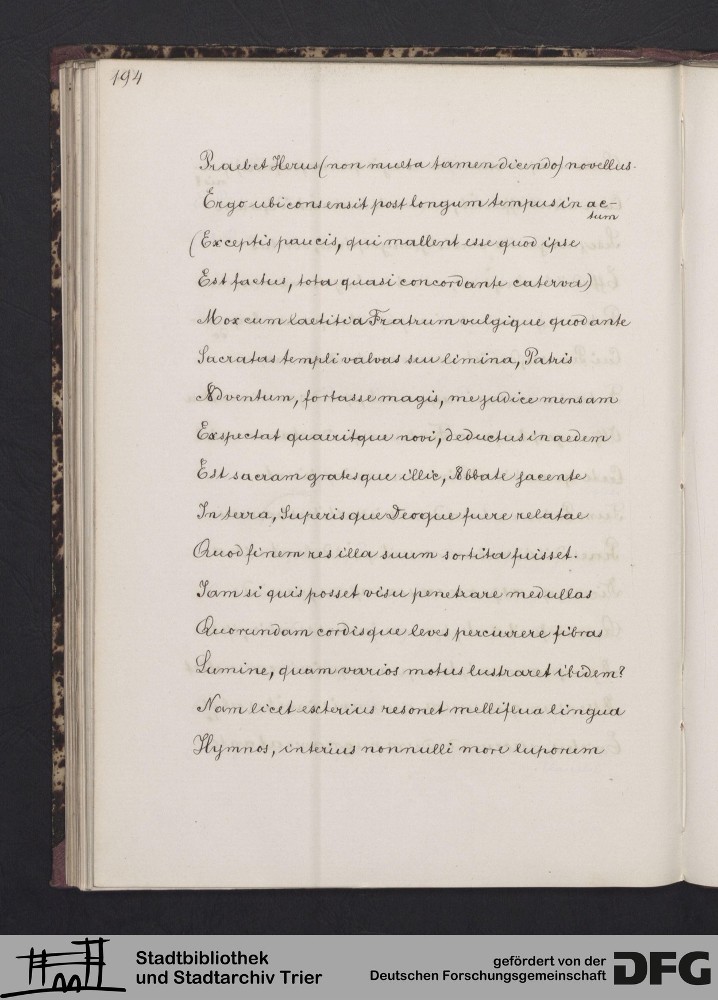 194
Praebet Herus (non multa tamen dicendo) novellus.
Ergo ubi consensit post longum tempus in ac-
tum
(Exceptis paucis, qui mallent esse quod ipse
Est factus, tota quasi concordante caterva)
Mox cum laetitia Fratrum vulgique quodante
Sacratas templi valvas seu limina, Patris
Adventum, fortasse magis, me judice mensam
Exspectat quaeritque novi, deductus in aedem
Est sacram gratesque illic, Abbate jacente
In terra, Superisque Deoque fuere relatae
Quod finem res illa suum sortita fuisset.
Iam si quis posset visu penetrare medullas
Quorundam cordisque leves percurrere fibras
Lumine, quam varios motus lustraret ibidem?
Nam licet exterius resonet melliflua lingua
Hymnos, interius nonnulli more luporum
Stadtbibliothek
und Stadtarchiv Trier
gefördert von der
Deutschen Forschungsgemeinschaft
DFG